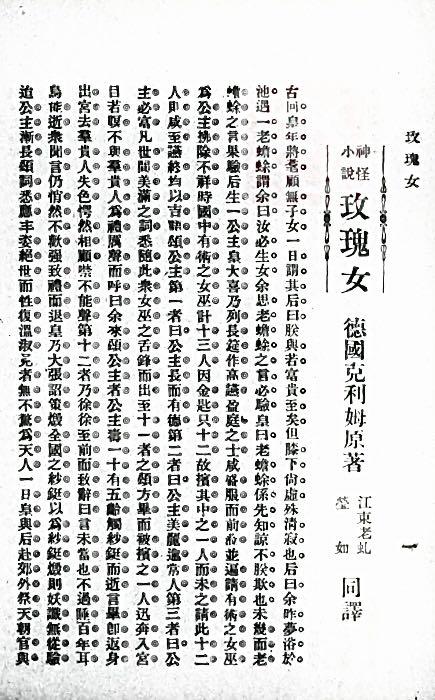 玫瑰女
一
神怪小說
玫瑰女
德國克利姆原著
江東老虬
瑩如
同譯
古回皇年將老顧無子女一日謂其后曰朕與若富貴至矣但膝下尚虛殊清寂也后曰余昨夢浴於
池遇一老蟾蜍謂余曰汝必生女余思老蟾蜍之言必驗皇曰老蟾蜍係先知諒不朕欺也未幾而老
蟾蜍之言果驗后生一公主皇大喜乃列長筵作高讌盈庭之士咸盛服而前並遍請有術之女巫
爲公主祓除不祥時國中有術之女巫計十三人因金匙只十二故擯其中之一人而未之請此十二
人即咸至讌終均以吉語頌公主第一者曰公主長而有德第二者曰公主美麗逾常人第三者曰公
主必富凡世間美滿之詞悉隨此衆女巫之舌鋒而出至十一者之頌方畢而被擯之一人迅奔入宮
目若瞑不與羣貴人爲禮厲聲而呼曰余來頌公主者公主壽一十有五齡觸紗鋌而逝言畢卽返身
出宮去羣貴人失色愕然相顧噤不能聲第十二者乃徐徐至前而致辭曰言未當也不過睡百年耳
烏能逝衆聞言仍悄然不歡強致禮而退皇乃大張詔策燬全國之紗鋌以爲紗鋌燬則妖讖無從驗
迨公主漸長頌詞悉應丰姿絕世而性復溫淑見者無不驚爲天人一日皇與后赴郊外祭天朝官與